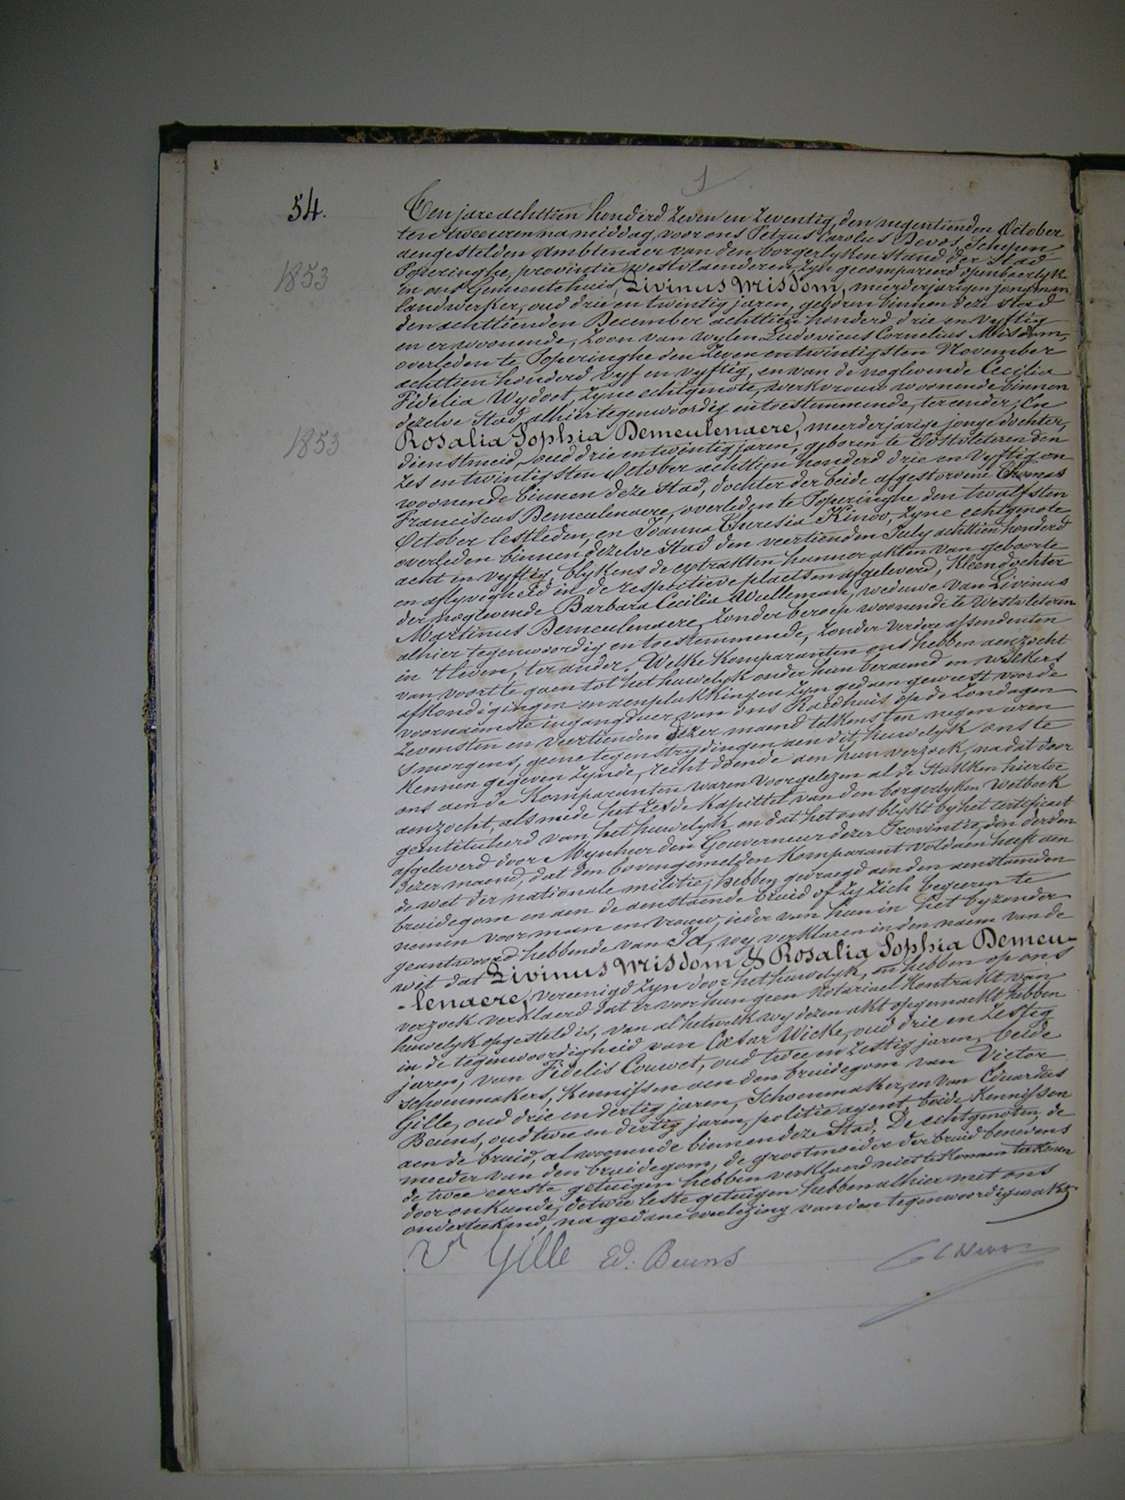 1
54.
Ten jare achttien honderd zeven en zeventig, den negentienden October
ten twee uren namiddag, voor ons Petrus Carolus Devos, Schepen
aengestelden Ambtenaer van den borgerlyken stand der Stad
Poperinghe, provintie Westvlaenderen, zyn gecompareerd openbaerlyk
1853
in ons Gemeentehuis, Livinus Misdom, meerderjarigen jongman
landwerker, oud drie en twintig jaren, geboren binnen deze stad
den achttienden December achttien honderd drie en vyftig
en er woonende, zoon van wylen Ludovicus Cornelius Misdom,
overleden te Poperinghe den zeven en twintigsten November
achttien honderd vyf en vyftig, en van de noglevende Cecilia
Fidelia Wydoot, zyne echtgenote, werkvrouw woonende binnen
dezelve Stad, alhier tegenwoordig en toestemmende, ter eender; En
1853
Rosalia Sophia Demeulenaere, meerderjarige jonge dochter,
dienstmeid, oud drie en twintig jaren, geboren te Westvleteren den
zes en twintigsten October achttien honderd drie en vyftig en
woonende binnen deze Stad, dochter der beide afgestorvene Thomas
Franciscus Demeulenaere, overleden te Poperinghe den twaelfsten
October lestleden, en Joanna Theresia Kinoo, zyne echtgenote
overleden binnen dezelve Stad den veertienden July achttien honderd
acht en vyftig, blykens de extrakten hunner akten van geboorte
en aflyvigheid in de respective plaetsen afgeleverd, kleendochter
der noglevende Barbara Cecilia Wullemaere, weduwe van Livinus
Martinus Demeulenaere, zonder beroep woonende te Westvleteren
alhier tegenwoordig en toestemmende, zonder verdere assendenten
in 't leven, ter ander. Welke Komparanten ons hebben aenzocht
van voort te gaen tot het huwelyk onder hun beraemd en welkers
afkondigingen en aenplakkingen zyn gedaen geweest voor de
voornaemste ingangdeur van ons Raedhuis op de Zondagen
zevensten en veertienden dezer maend telkens ten negen uren
s'morgens, geene tegenstrydingen aen dit huwelyk ons te
kennen gegeven zynde, recht doende aen hun verzoek, na dat door
ons aen de Komparanten waren voorgelezen al de stukken hiertoe
aenzocht, als mede het zesde Kapittel van den borgerlyken Wetboek
geintituleerd van het huwelyk en dat het ons blykt by het certificaet
afgeleverd door Mynheer den Gouverneur dezer Provintie, den derden
dezer maend, dat den bovengemelden Komparant voldaen heeft aen
de wet der nationale militie; hebben gevraegd aen den aenstaenden
bruidegom en aen de aenstaende bruid of zy zich begeeren te
nemen voor man en vrouw, ieder van hun in het byzonder
geantwoord hebbende van Ja, wy verklaren in den naem van de
wet dat Livinus Misdom & Rosalia Sophia Demeu-
-lenaere, vereenigd zyn door het huwelyk, en hebben op ons
verzoek verklaerd dat er voor hun geen Notariael Kontrakt van
huwelyk opgesteld is, van al hetwelk wy dezen akt opgemaekt hebben
in de tegenwoordigheid van Cæsar Wicke, oud drie en zestig
jaren, van Fidelis Couwet, oud twee en zestig jaren, beide
schoenmakers, Kennissen aen den bruidegom van Victor
Gille, oud drie en dertig jaren, Schoenmaker, en van Eduardus
Beuns, oud twee en dertig jaren, politie agent, beide Kennissen
aen de bruid, al woonende binnen deze Stad. De echtgenoten, de
moeder van den bruidegom, de grootmoeder der bruid benevens
de twee eerste getuigen hebben verklaerd niet te konnen teekenen
door onkunde, de twee leste getuigen hebben alhier met ons
onderteekend, na gedane overlezing van den tegenwoordigen akt
V Gille Ed: Beuns